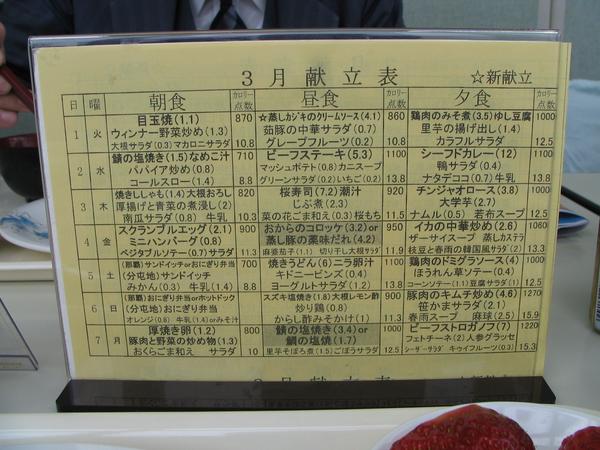 3月献立表 ☆新献立
日 曜 朝食 カロリー点数 昼食 カロリー点数 夕食 カロリー点数
1 火
目玉焼(1.1) 870
ウィンナー野菜炒め(1.3)
大根サラダ(0.3)マカロニサラダ 10.8
☆蒸しカジキのクリームソース(4.1) 860
茹豚の中華サラダ(0.7)
グレープフルーツ(0.2) 10.8
鶏肉のみそ煮(3.5)ゆし豆腐 1000
里芋の揚げ出し(1.4)
カラフルサラダ 12.5
2 水
鯖の塩焼き(1.5)なめこ汁 710
パパイア炒め(0.8)
コールスロー(1.4) 8.8
ビーフステーキ(5.3) 1100
マッシュポテト(0.8)カニスープ
グリーンサラダ(0.2)いちご(0.2) 13.8
シーフドカレー(12) 1100
鴨サラダ(0.4)
ナタデココ(0.7)牛乳 13.8
3 木
焼きししゃも(1.5)大根おろし 820
厚揚げと青菜の煮浸し(2)
南瓜サラダ(0.8)牛乳 10.3
桜寿司(7.2)潮汁 920
じぶ煮(2.3)
菜の花ごま和え(0.3)桜もち 11.5
チンジャオロース(3.8) 1000
大学芋(2.7)
ナムル(0.5)若布スープ 12.5
4 金
スクランブルエッグ(2.1) 900
ミニハンバーグ(0.8)
ベジタブルソテー(0.7)サラダ 11.3
おからのコロッケ(3.2)or 950
蒸し豚の薬味だれ(4.2)
麻婆茄子(1.1)切り干し大根サラダ 11.9
イカの中華炒め(2.6) 1060
ザーサイスープ 蒸しカステラ
枝豆と春雨の韓国風サラダ(2) 13.3
5 土
(那覇)サンドイッチorおにぎり弁当 700
(分屯地)サンドイッチ
みかん(0.3)牛乳(1.4) 8.8
焼きうどん(6)ニラ卵汁 1100
キドニービーンズ(0.4)
ヨーグルトサラダ(1.2) 13.8
鶏肉のドミグラソース(4) 1000
ほうれん草ソテー(0.4)
コーンソテー(1.1)豆腐サラダ(1) 12.5
6 日
(那覇)おにぎり弁当orホットドック
(分屯地)おにぎり弁当
オレンジ(0.8)牛乳(1.4)orみそ汁
スズキ塩焼き(1.8)大根レモン酢 900
炒り鶏(0.8)
からし酢みそかけ(1) 11.3
豚肉のキムチ炒め(4.6) 1270
笹かまサラダ(2.1)
春雨スープ 麻球(2.5) 15.9
7 月
厚焼き卵(1.2) 800
豚肉と野菜の炒め物(1.3)
おくらごま和え サラダ 10
鯖の塩焼き(3.4)or 1000
鯛の塩焼(1.7)
里芋そぼろ煮(1.5)ごぼうサラダ 12.5
ビーフストロガノフ(7) 1220
フェトチーネ(2)人参グラッセ
シーザーサラダ キウイフルーツ(0.3) 15.3